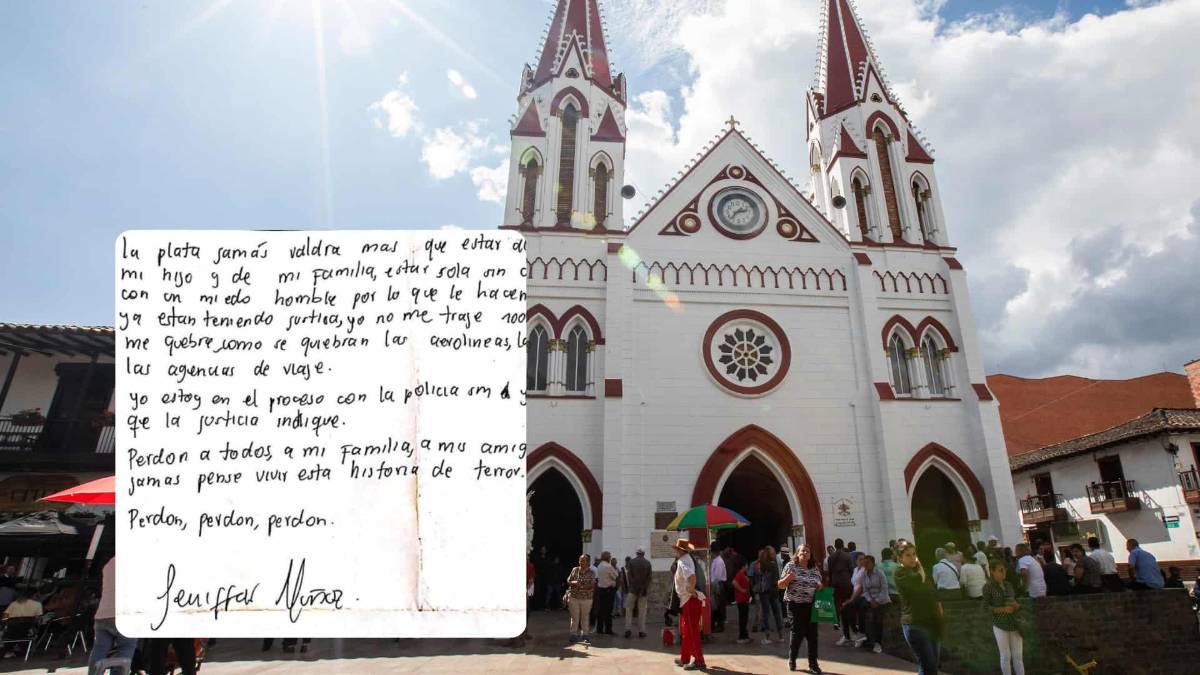 la plata jamás valdra mas que estar d
mi hijo y de mi familia, estar sola sin c
con un miedo horrible por lo que le hacen
ya estan teniendo justicia, yo no me traje 100
me quebre, como se quiebran las aerolineas, la
las agencias de viaje.
yo estoy en el proceso con la policia sin y
que la justicia indique.
Perdon a todos, a mi familia, a mis amig
jamas pense vivir esta historia de terror.
Perdon, perdon, perdon.
Jeniffer Muñoz.